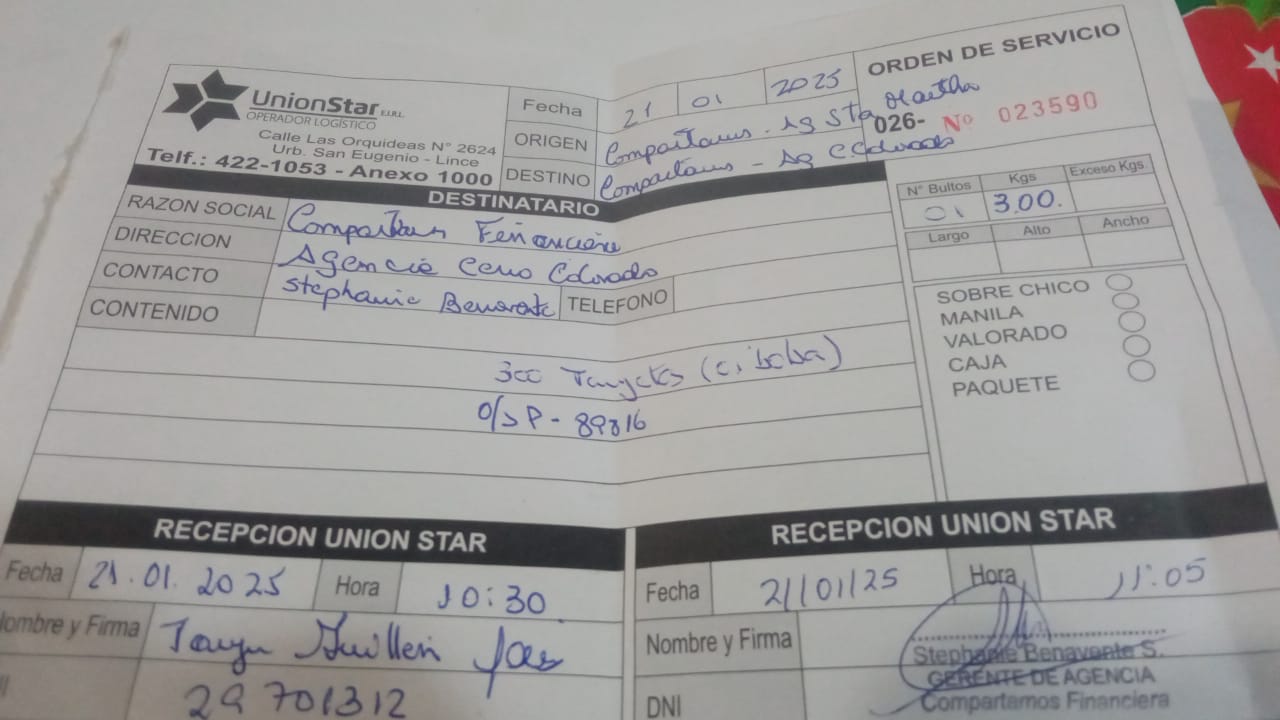 UnionStar E.I.R.L.
OPERADOR LOGÍSTICO
Calle Las Orquideas N° 2624
Urb. San Eugenio - Lince
Telf.: 422-1053 - Anexo 1000
Fecha 21 01 2025
ORIGEN Compartamos - Ag Sta Martha
DESTINO Compartamos - Ag C. Colorado
ORDEN DE SERVICIO
026- Nº 023590
DESTINATARIO
RAZON SOCIAL Compartamos Financiera
DIRECCION Agencia Cerro Colorado
CONTACTO Stephanie Benavente TELEFONO
CONTENIDO
300 (
O/SP - 89816
N° Bultos Kgs Exceso Kgs.
01 3.00.
Largo Alto Ancho
SOBRE CHICO
MANILA
VALORADO
CAJA
PAQUETE
RECEPCION UNION STAR
Fecha 21.01.2025 Hora 10:30
Nombre y Firma Guillen
29701312
RECEPCION UNION STAR
Fecha 21/01/25 Hora 11:05
Nombre y Firma
Stephanie Benavente S.
GERENTE DE AGENCIA
Compartamos Financiera
DNI